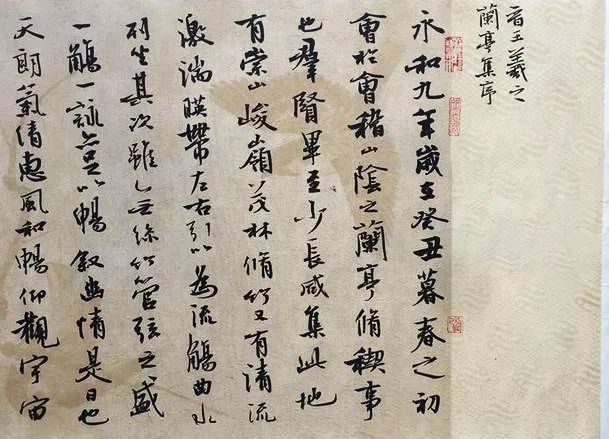 晉王羲之
蘭亭集序
永和九年歲在癸丑暮春之初
會於會稽山陰之蘭亭脩稧事
也羣賢畢至少長咸集此地
有崇山峻嶺茂林脩竹又有清流
激湍暎帶左右引以為流觴曲水
列坐其次雖無絲竹管弦之盛
一觴一詠亦足以暢叙幽情是日也
天朗氣清惠風和暢仰觀宇宙